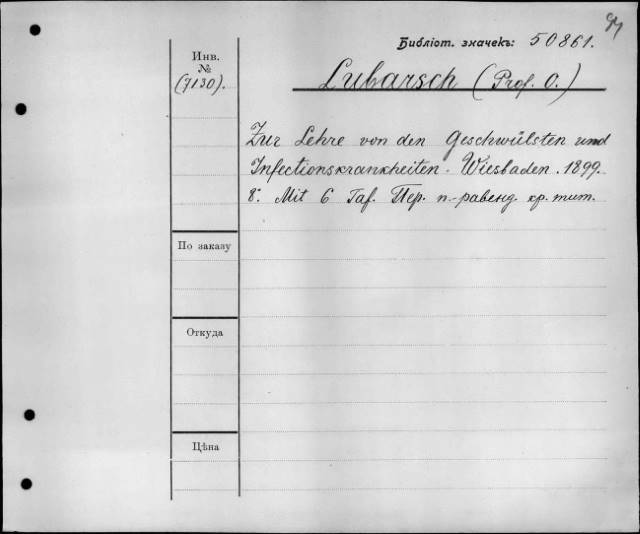 Библіот. значекъ: 50861.
Инв.
№
(7130).
Lubarsch (Prof. O.)
Zur Lehre von den Geschwülsten und
Infectionskrankheiten. Wiesbaden. 1899.
8°. Mit 6 Taf. Пер. п.-равенд. кр. тит.
По заказу
Откуда
Цѣна